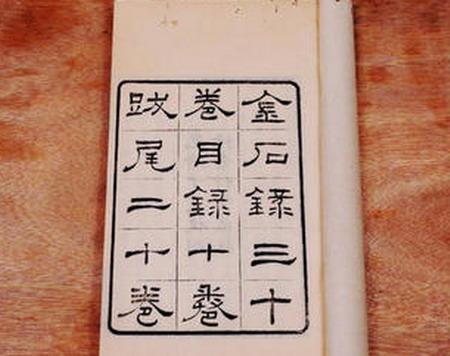 金石錄三十
卷目録十卷
跋尾二十卷